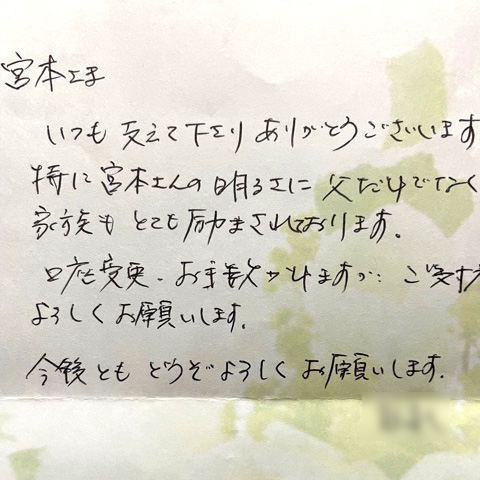 宮本さま
いつも支えて下さり ありがとうございます
特に宮本さんの明るさに 父だけでなく
家族も とても励まされております。
口座変更、お手数かけますが… ご
よろしくお願いします。
今後とも どうぞよろしく お願いします。